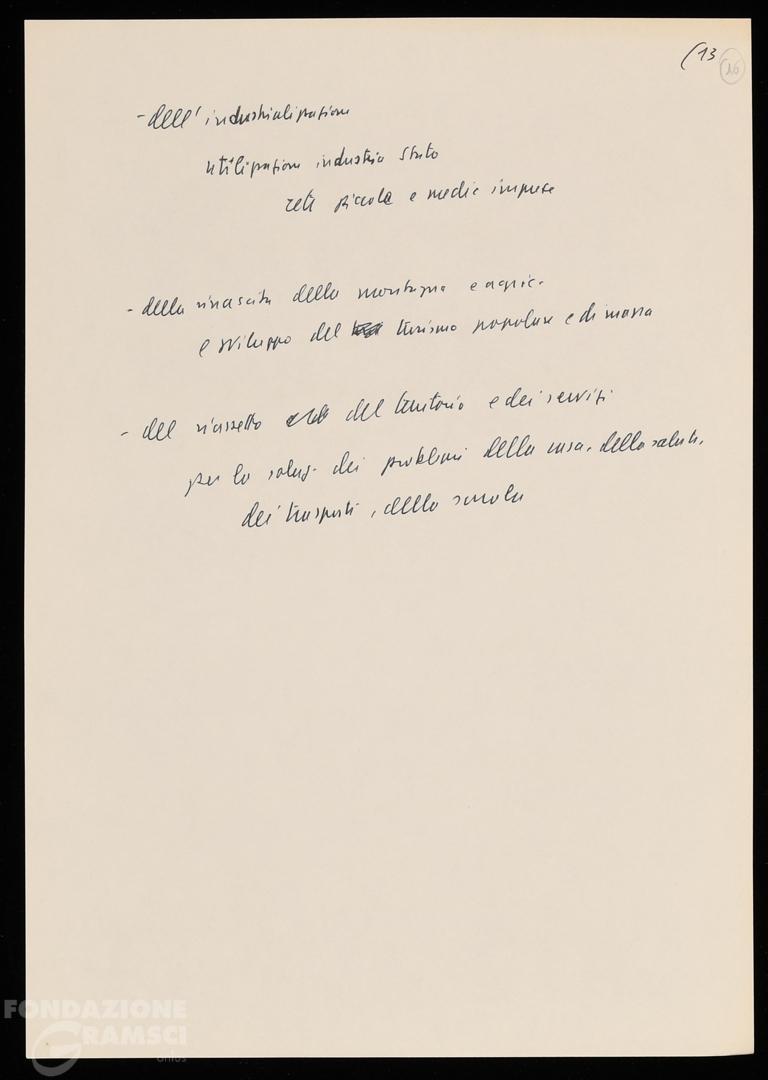 (13
26
- dell'industrializzazione
utilizzazione industria Stato
rete piccola e media impresa
- della rinascita della montagna e agric.
e sviluppo del turismo popolare e di massa
- del riassetto del territorio e dei servizi
per la soluz. dei problemi della casa, della salute,
dei trasporti, della scuola
FONDAZIONE
GRAMSCI
onlus